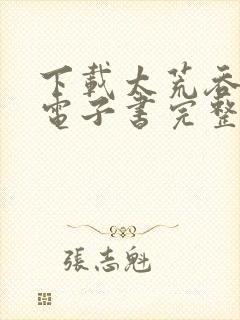 下載大荒吞
電子書完整
張志魁